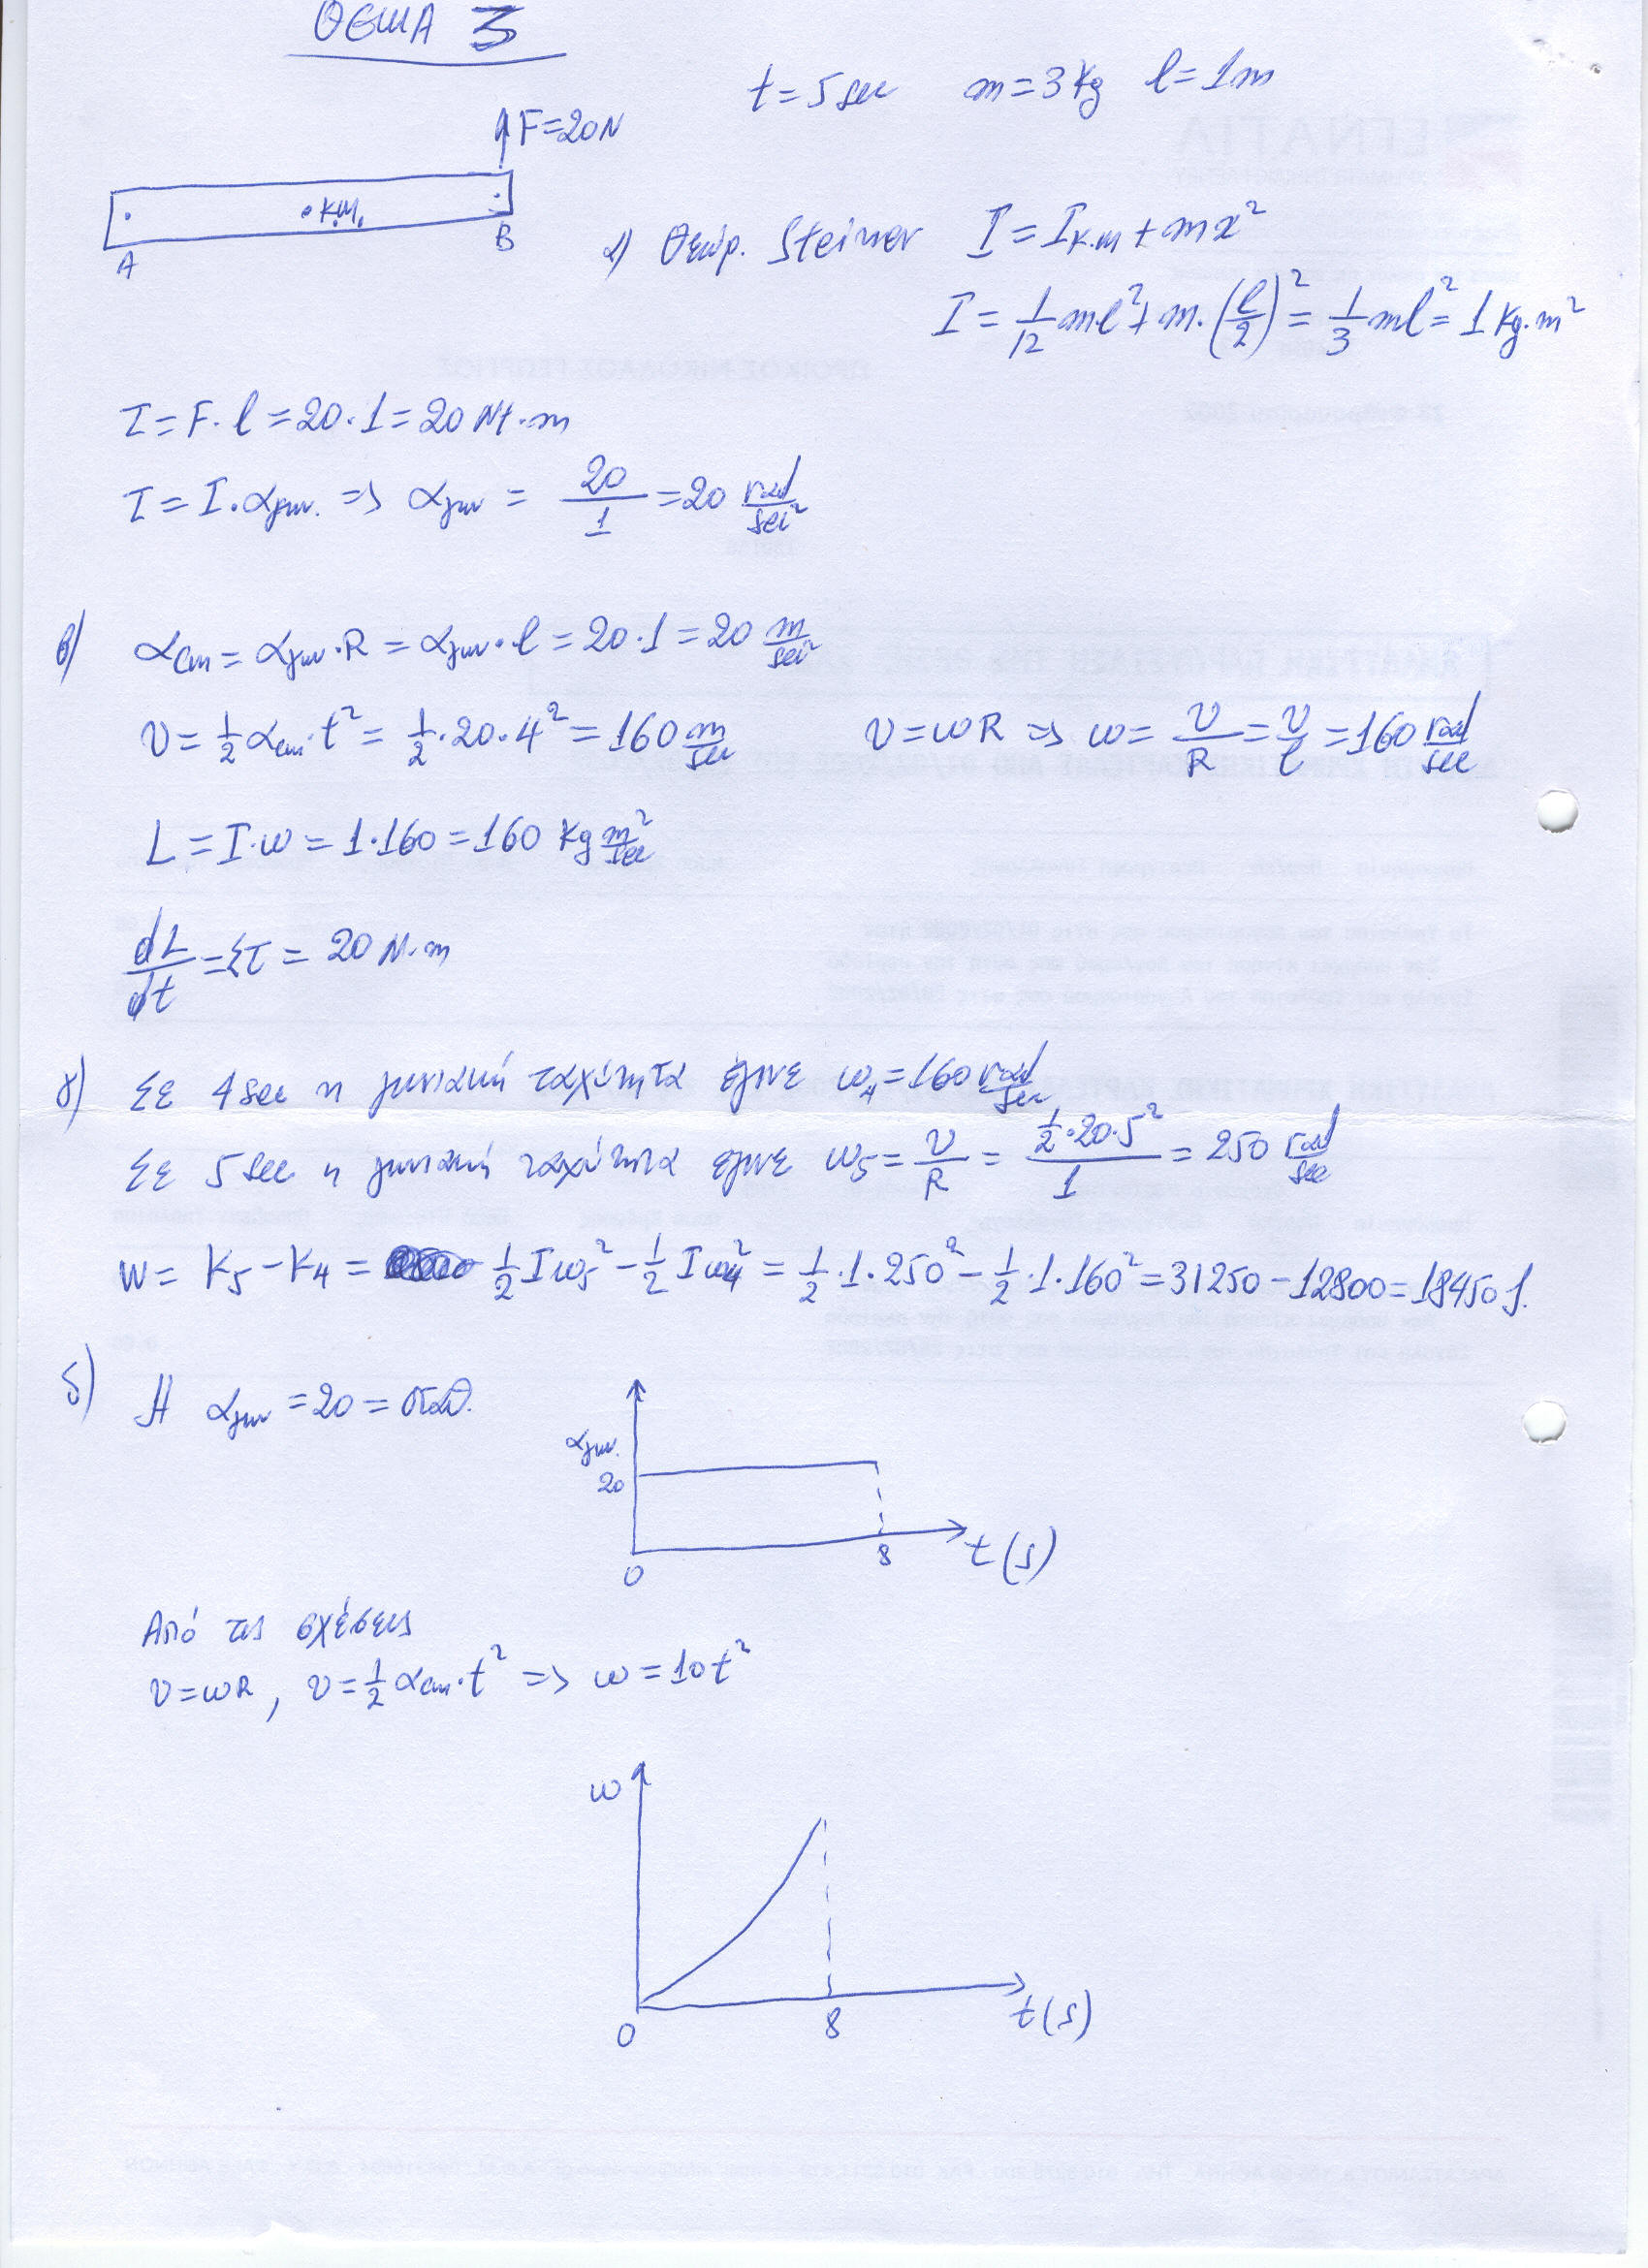 ΘΕΜΑ 3
t=5sec m=3Kg l=1m
F=20N
Κ.Μ.
A
B
α) Θεώρ. Steiner I=Iκ.μ+mx²
I=1/12 ml²+m·(l/2)²=1/3 ml²=1Kg·m²
τ=F·l=20·1=20Nt·m
τ=I·αγων. => αγων = 20/1 =20 rad/sec²
β) αcm=αγων·R=αγων·l=20·1=20 m/sec²
υ=1/2 αcm·t²=1/2·20·4²=160 m/sec υ=ωR => ω=υ/R=υ/l=160 rad/sec
L=I·ω=1·160=160 Kg m²/sec
dL/dt=Στ=20N·m
γ) Σε 4sec η γωνιακή ταχύτητα έγινε ω4=160 rad/sec
Σε 5sec η γωνιακή ταχύτητα έγινε ω5=υ/R=1/2·20·5²/1=250 rad/sec
W=K5-K4= 1/2 Iω5²-1/2 Iω4²=1/2·1·250²-1/2·1·160²=31250-12800=18450J.
δ) Η αγων=20=σταθ.
αγων.
20
0
8
t(s)
Από τις σχέσεις
υ=ωR, υ=1/2 αcm·t² => ω=10t²
ω
0
8
t(s)